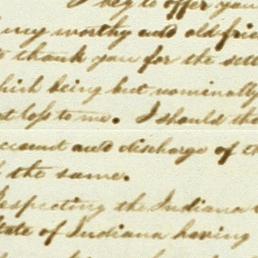 I beg to offer you
my worthy and old frie
to thank you for the sett
which being but nominally
st loss to me. I should tha
account and discharge of th
f the same.
Respecting the Indiana
State of Indiana having